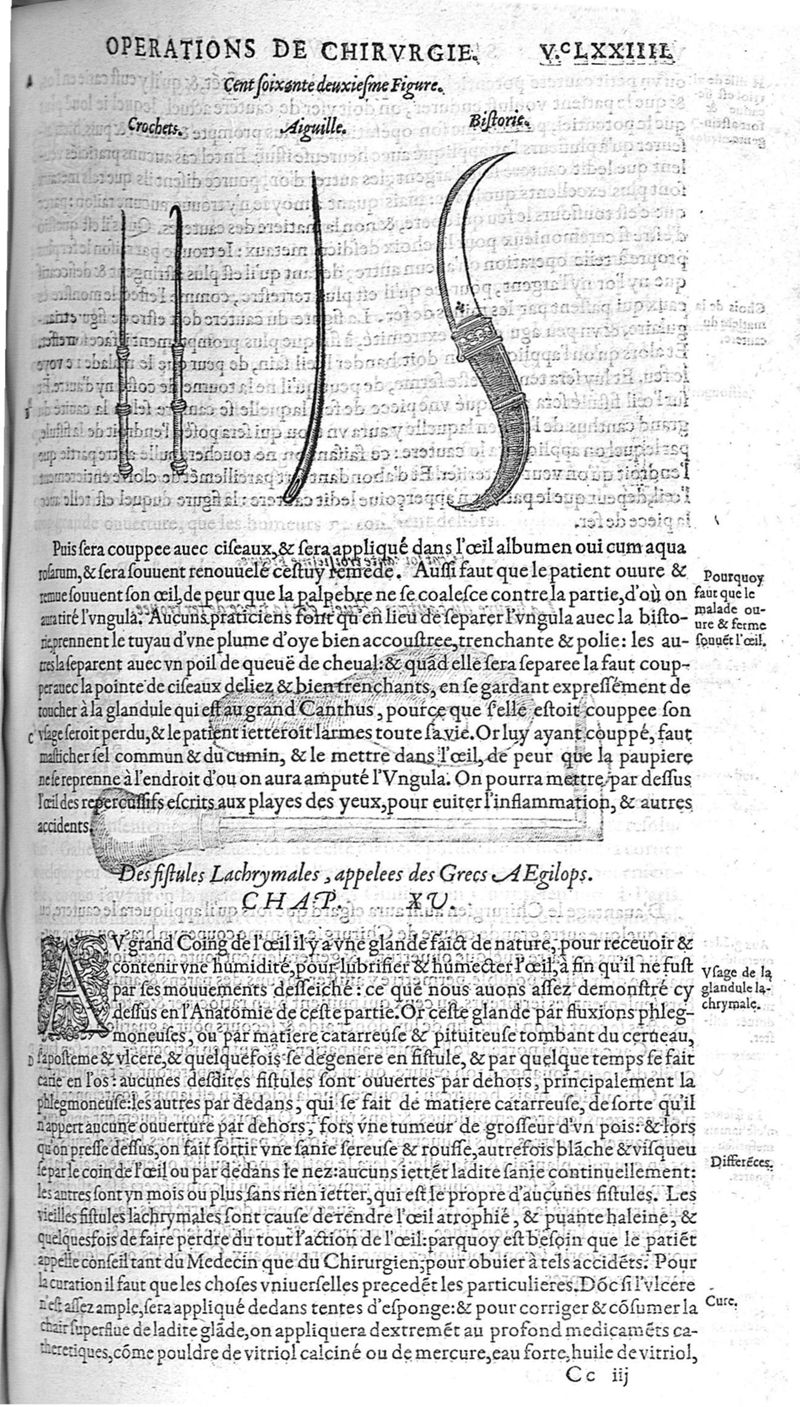 OPERATIONS DE CHIRVRGIE.
V.cLXXIIII.
Cent soixante deuxiesme Figure.
Crochets.
Aiguille.
Bistorie.
Puis sera couppee auec ciseaux,& sera appliqué dans l'œil albumen oui cum aqua
rosarum,& sera souuent renouuelé cestuy remede. Aussi faut que le patient ouure &
remue souuent son œil, de peur que la palpebre ne se coalesce contre la partie, d'où on
aura tiré l'vngula. Aucuns praticiens font qu'en lieu de separer l'vngula auec la bisto-
rie, prennent le tuyau d'vne plume d'oye bien accoustree, trenchante & polie: les au-
tres la separent auec vn poil de queuë de cheual: & quãd elle sera separee la faut coup-
per auec la pointe de ciseaux deliez & bien trenchants, en se gardant expressément de
toucher à la glandule qui est au grand Canthus, pource que s'elle estoit couppee son
vsage seroit perdu,& le patient ietteroit larmes toute sa vie. Or luy ayant couppé, faut
mascher sel commun & du cumin, & le mettre dans l'œil, de peur que la paupiere
ne se reprenne à l'endroit d'ou on aura amputé l'Vngula. On pourra mettre par dessus
l'œil des repercussifs escrits aux playes des yeux, pour euiter l'inflammation, & autres
accidents.
Pourquoy
faut que le
malade ou-
ure & ferme
souuēt l'œil.
C
Des fistules Lachrymales, appelees des Grecs AEgilops.
CHAP. XV.
AV grand Coing de l'œil il y a vne glande faict de nature, pour receuoir &
contenir vne humidité, pour lubrifier & humecter l'œil, à fin qu'il ne fust
par ses mouuements desseiché: ce que nous auons assez demonstré cy
dessus en l'Anatomie de ceste partie. Or ceste glande par fluxions phleg-
moneuses, ou par matiere catarreuse & pituiteuse tombant du cerueau,
s'aposteme & vlcere,& quelquefois se degenere en fistule, & par quelque temps se fait
carie en l'os: aucunes desdites fistules sont ouuertes par dehors, principalement la
phlegmoneuse: les autres par dedans, qui se fait de matiere catarreuse, de sorte qu'il
n'appert aucune ouuerture par dehors, fors vne tumeur de grosseur d'vn pois: & lors
qu'on presse dessus, on fait sortir vne sanie sereuse & rousse, autrefois blãche & visqueu
se par le coin de l'œil ou par dedans le nez: aucuns iettēt ladite sanie continuellement:
les autres sont vn mois ou plus sans rien ietter, qui est le propre d'aucunes fistules. Les
vieilles fistules lachrymales sont cause de rendre l'œil atrophié, & puante haleine, &
quelquesfois de faire perdre du tout l'action de l'œil: parquoy est besoin que le patiēt
appelle conseil tant du Medecin que du Chirurgien, pour obuier à tels accidēts. Pour
la curation il faut que les choses vniuerselles precedēt les particulieres. Dõc si l'vlcere
n'est assez ample, sera appliqué dedans tentes d'esponge: & pour corriger & cõsumer la
chair superflue de ladite glãde, on appliquera dextremēt au profond medicamēts ca-
theretiques, cõme pouldre de vitriol calciné ou de mercure, eau forte, huile de vitriol,
Vsage de la
glandule la-
chrymale.
D
Differēces.
Cure.
Cc iij